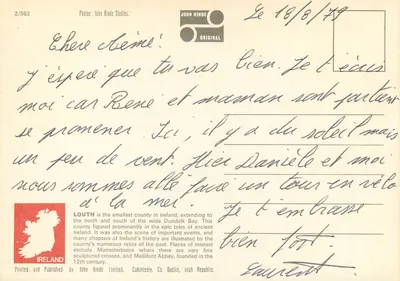 2/882
Photo: John Hinde Studios.
JOHN HINDE
ORIGINAL
Le 18/8/79
Chere Mémé!
J'éspère que tu vas bien. Je t'écris
moi car René et maman sont partient
se promener. Ici, il y a du soleil mais
un peu de vent. Hier Danièle et moi
nous sommes allé faire un tour en vélo
à la mer.
Je t'embrasse
bien fort.
Laurent
IRELAND
LOUTH is the smallest county in Ireland, extending to
the north and south of the wide Dundalk Bay. This
county figured prominently in the epic tales of ancient
Ireland. It was also the scene of important events, and
many chapters of Ireland's history are illustrated by the
county's numerous relics of the past. Places of interest
include Monasterboice where there are very fine
sculptured crosses, and Mellifont Abbey, founded in the
12th century.
Printed and Published by John Hinde Limited, Cabinteely, Co. Dublin, Irish Republic.